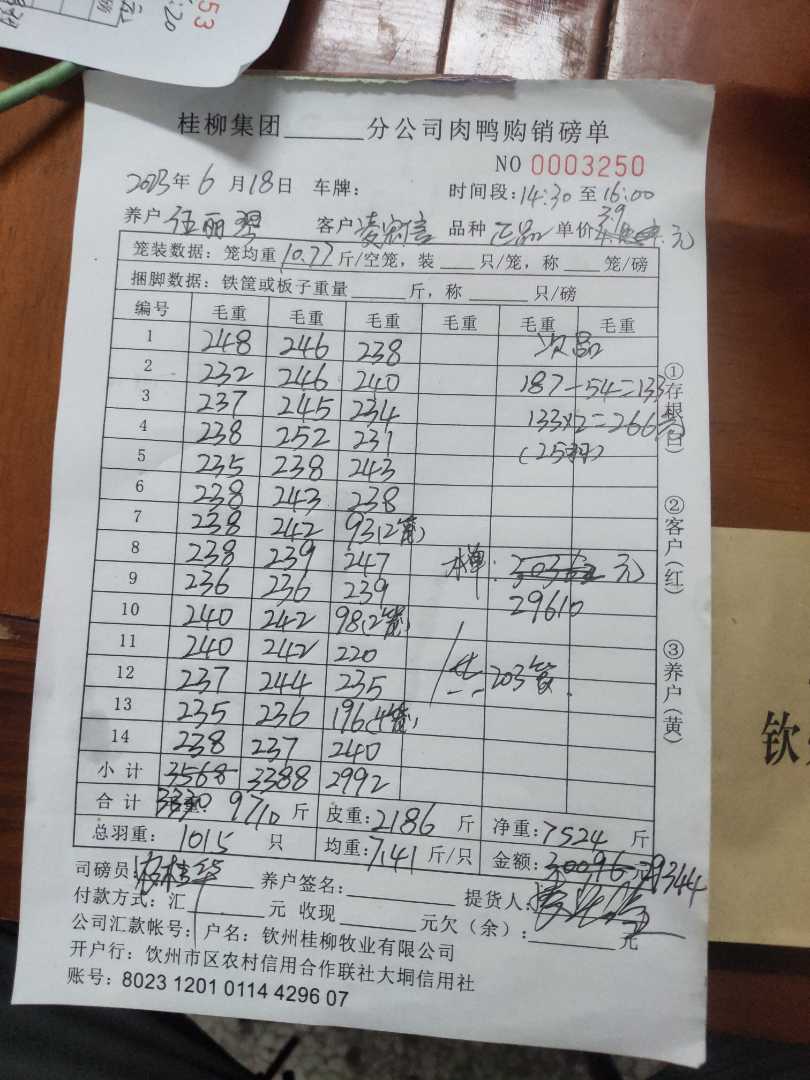 53
桂柳集团______分公司肉鸭购销磅单
NO 0003250
2023年 6 月 18日 车牌: 时间段: 14:30 至 16:00
养户 伍丽翠 客户 凌宗信 品种 正品 单价 3.9 元
笼装数据: 笼均重 10.77 斤/空笼, 装 ___ 只/笼, 称 ___ 笼/磅
捆脚数据: 铁筐或板子重量 ______ 斤, 称 ______ 只/磅
编号 毛重 毛重 毛重 毛重 毛重 毛重
1 248 246 238 次品
2 232 246 240 187-54=133
3 237 245 234 133×2=266元
4 238 252 231 (25只)
5 235 238 243
6 238 243 238
7 238 242 93(2笼)
8 238 239 247 本单: 元
9 236 236 239 29610
10 240 242 98(2笼)
11 240 242 220
12 237 244 235 共: 203笼.
13 235 236 196(4笼)
14 238 237 240
小计 3568 3388 2992
合计 9710 斤 皮重: 2186 斤 净重: 7524 斤
总羽重: 1015 只 均重: 7.41 斤/只 金额: 30096元 29344
司磅员: 养户签名: 提货人:
付款方式: 汇______元 收现______元欠(余): ______元
公司汇款帐号: 户名: 钦州桂柳牧业有限公司
开户行: 饮州市区农村信用合作联社大垌信用社
账号: 8023 1201 0114 4296 07
①存根(白)
②客户(红)
③养户(黄)
钦